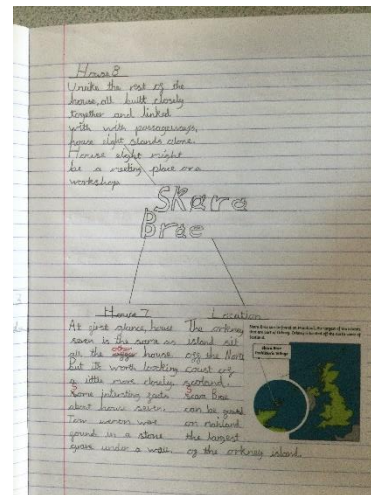 House 8
Unlike the rest of the
house, all built closely
together and linked
with with passageways,
house eight stands alone.
House eight might
be a meeting place or a
workshop
Skara
Brae
House 7
At first glance, house
seven is the same as
all the other house
But its worth looking
a little more closely
Some intresting facts
about house seven.
Two women were
found in a stone
grave under a wall.
Location
The orkney
island sit
off the North
coast of
scotland
Scara Brae
can be found
on mainland
the largest
of the orkney island
Skara Brae
Prehistoric Village